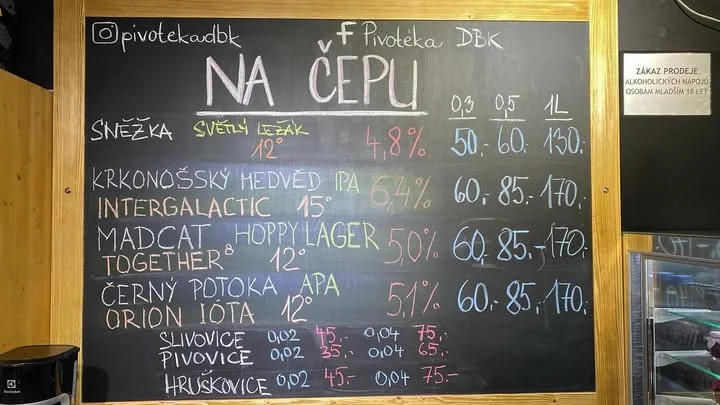 pivotekadbk
f Pivotéka DBK
NA ČEPU
0,3 0,5 1L
SNĚŽKA SVĚTLÝ LEŽÁK 4,8% 50,- 60,- 130,-
12°
KRKONOŠSKÝ MEDVĚD IPA 6,4% 60,- 85,- 170,-
INTERGALACTIC 15°
MADCAT HOPPY LAGER 5,0% 60,- 85,- 170,-
TOGETHER⁸ 12°
ČERNÝ POTOKA APA 5,1% 60,- 85,- 170,-
ORION IÓTA 12°
SLIVOVICE 0,02 45,- 0,04 75,-
PIVOVICE 0,02 35,- 0,04 65,-
HRUŠKOVICE 0,02 45,- 0,04 75,-
ZÁKAZ PRODEJE
ALKOHOLICKÝCH NÁPOJŮ
OSOBÁM MLADŠÍM 18 LET